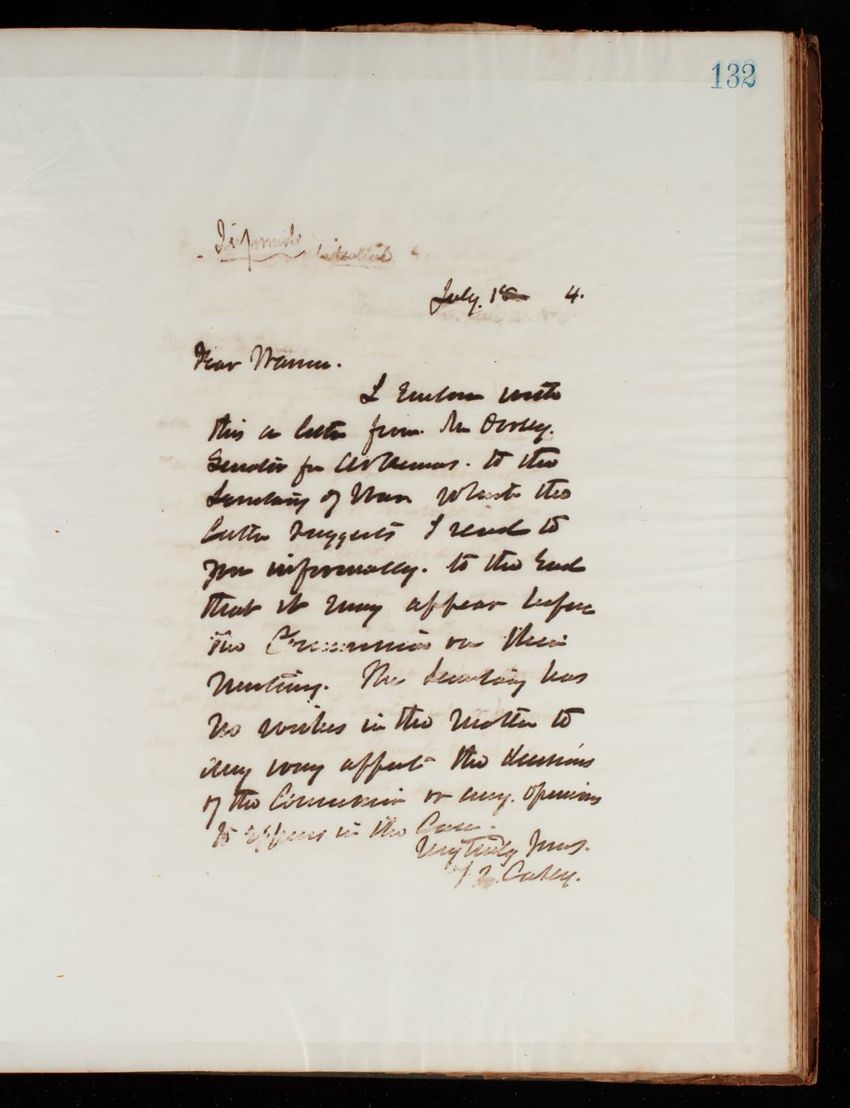 132
July. 1st 4.
Dear Warren.
I Enclose with
this a letter from Mr Dorsey.
Senator for Arkansas. to the
Secretary of War what the
letter suggests I send to
you informally. to the End
that it may appear before
the Commission on their
meeting. The Secretary has
no wishes in the matter to
any way affect the decisions
of the Commission or any. opinions
to express in the Case.
Very truly Yours.
T. L. Casey.